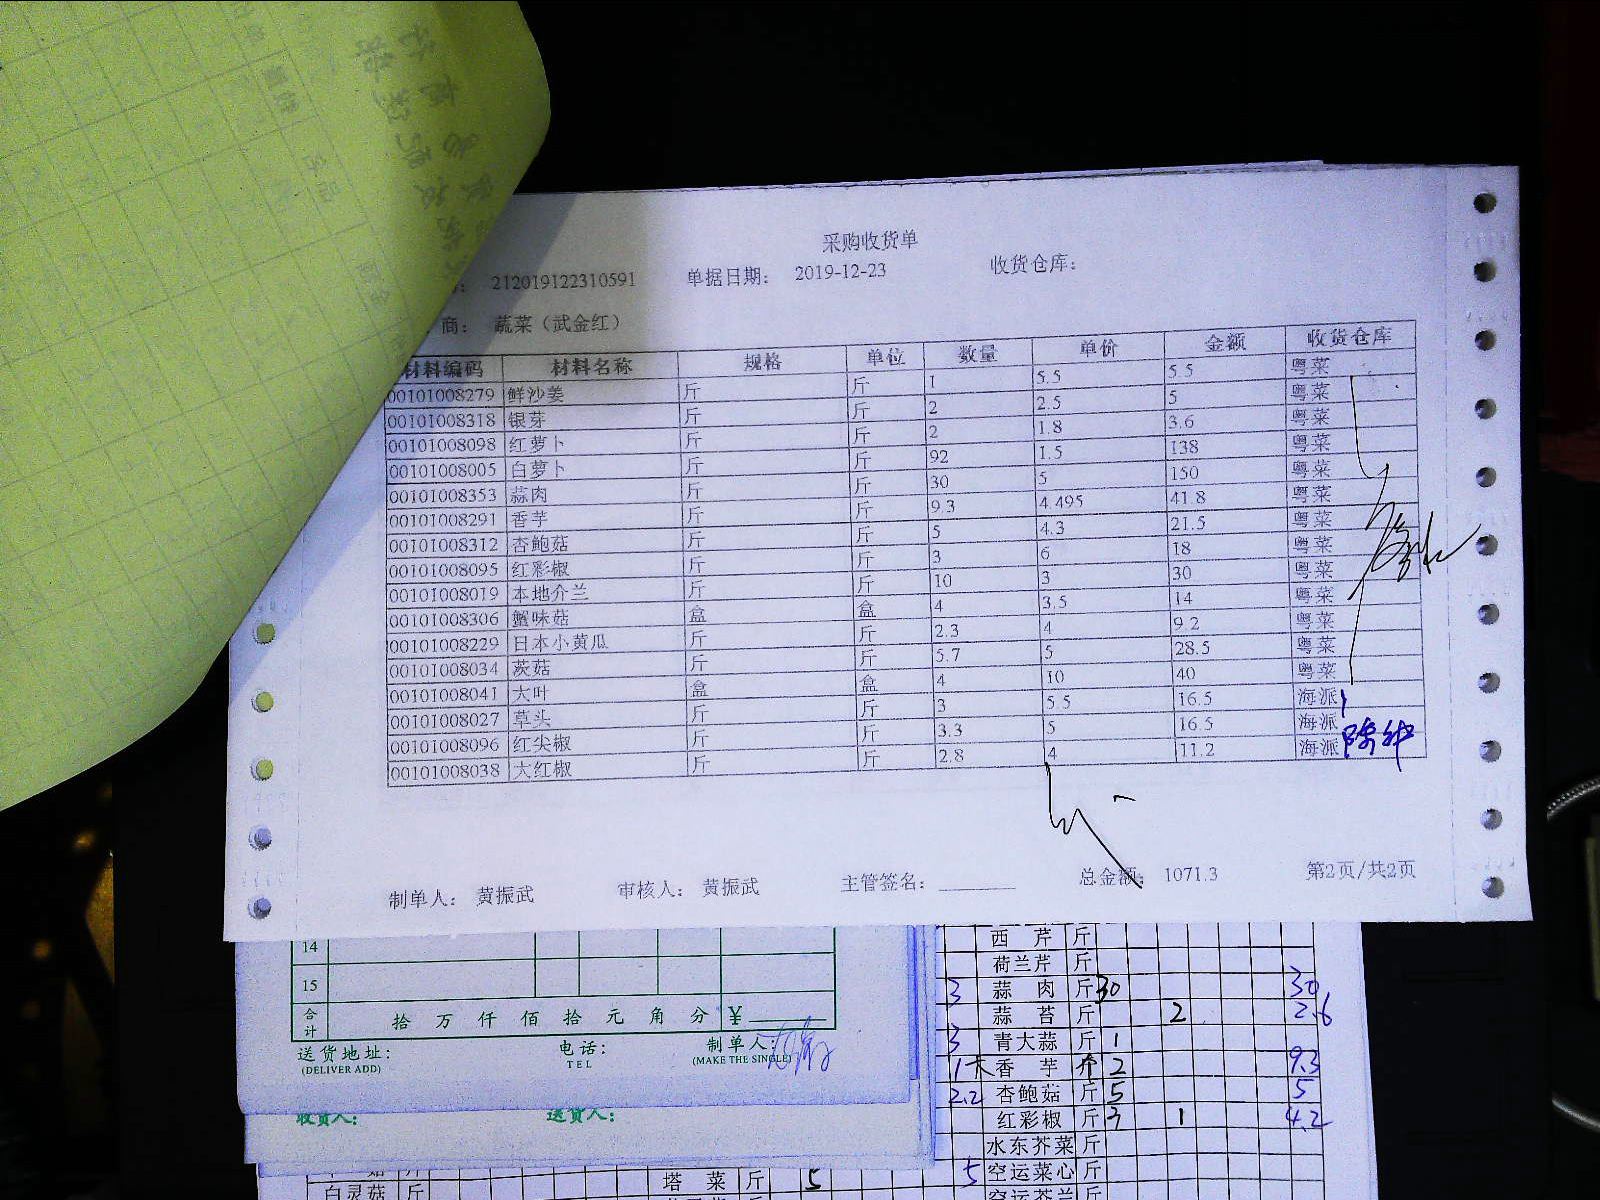 采购收货单
212019122310591 单据日期: 2019-12-23 收货仓库:
商: 蔬菜（武金红）
材料编码 材料名称 规格 单位 数量 单价 金额 收货仓库
00101008279 鲜沙姜 斤 斤 1 5.5 5.5 粤菜
00101008318 银芽 斤 斤 2 2.5 5 粤菜
00101008098 红萝卜 斤 斤 2 1.8 3.6 粤菜
00101008005 白萝卜 斤 斤 92 1.5 138 粤菜
00101008353 蒜肉 斤 斤 30 5 150 粤菜
00101008291 香芋 斤 斤 9.3 4.495 41.8 粤菜
00101008312 杏鲍菇 斤 斤 5 4.3 21.5 粤菜
00101008095 红彩椒 斤 斤 3 6 18 粤菜
00101008019 本地介兰 斤 斤 10 3 30 粤菜
00101008306 蟹味菇 盒 盒 4 3.5 14 粤菜
00101008229 日本小黄瓜 斤 斤 2.3 4 9.2 粤菜
00101008034 茨菇 斤 斤 5.7 5 28.5 粤菜
00101008041 大叶 盒 盒 4 10 40 粤菜
00101008027 草头 斤 斤 3 5.5 16.5 海派
00101008096 红尖椒 斤 斤 3.3 5 16.5 海派
00101008038 大红椒 斤 斤 2.8 4 11.2 海派
制单人: 黄振武 审核人: 黄振武 主管签名: 总金额: 1071.3 第2页/共2页
14
15
合计 拾 万 仟 佰 拾 元 角 分 ¥
送货地址: 电话: 制单人:
(DELIVER ADD) TEL (MAKE THE SINGLE)
收货人: 送货人:
西芹 斤
荷兰芹 斤
3 蒜肉 斤 30 30
蒜苔 斤 2 2.6
3 青大蒜 斤 1
香芋 2 9.3
2.2 杏鲍菇 斤 5 5
红彩椒 斤 3 1 4.2
水东芥菜 斤
5 空运菜心 斤
空运芥兰 斤
塔菜 斤 5
白灵菇 斤